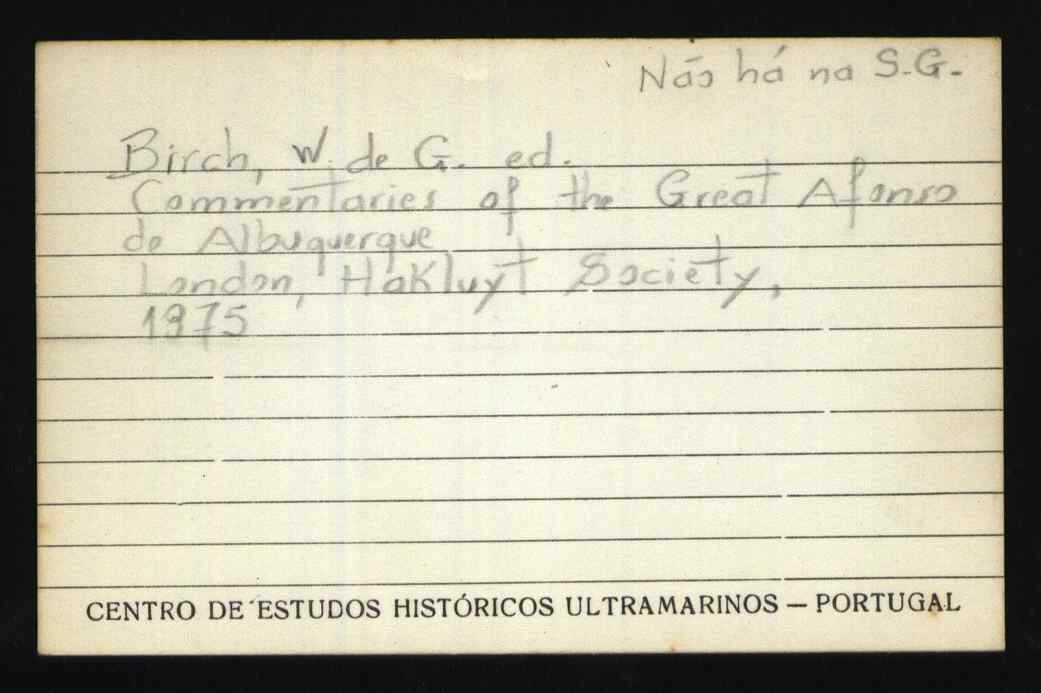 Não há na S.G.
Birch, W. de G. ed.
Commentaries of the Great Afonso
de Albuquerque
London, Hakluyt Society,
1975
CENTRO DE ESTUDOS HISTÓRICOS ULTRAMARINOS — PORTUGAL